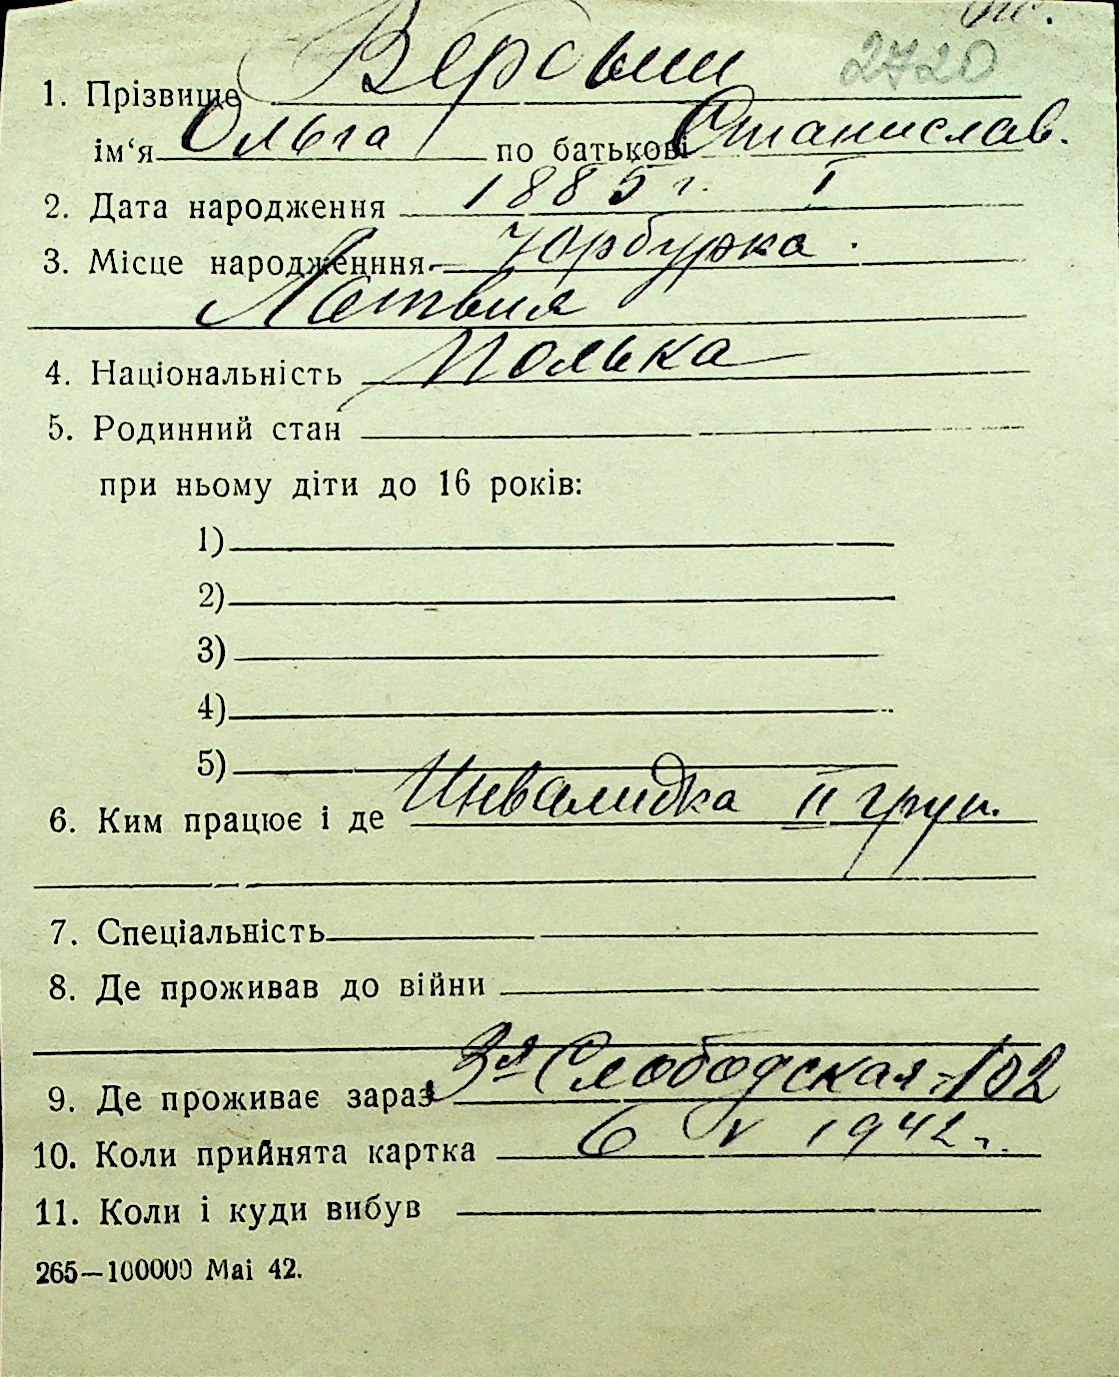 2720
1. Прізвище
ім‘я Ольга по батькові Станислав.
2. Дата народження 1885 г. I
3. Місце народженння Юрбуржа
Латвия
4. Національність Полька
5. Родинний стан
при ньому діти до 16 років:
1)
2)
3)
4)
5)
6. Ким працює і де Инвалидка II груп.
7. Спеціальність
8. Де проживав до війни
9. Де проживає зараз 3я Слободская - 102
10. Коли прийнята картка 6 V 1942 г.
11. Коли і куди вибув
265—100000 Маі 42.